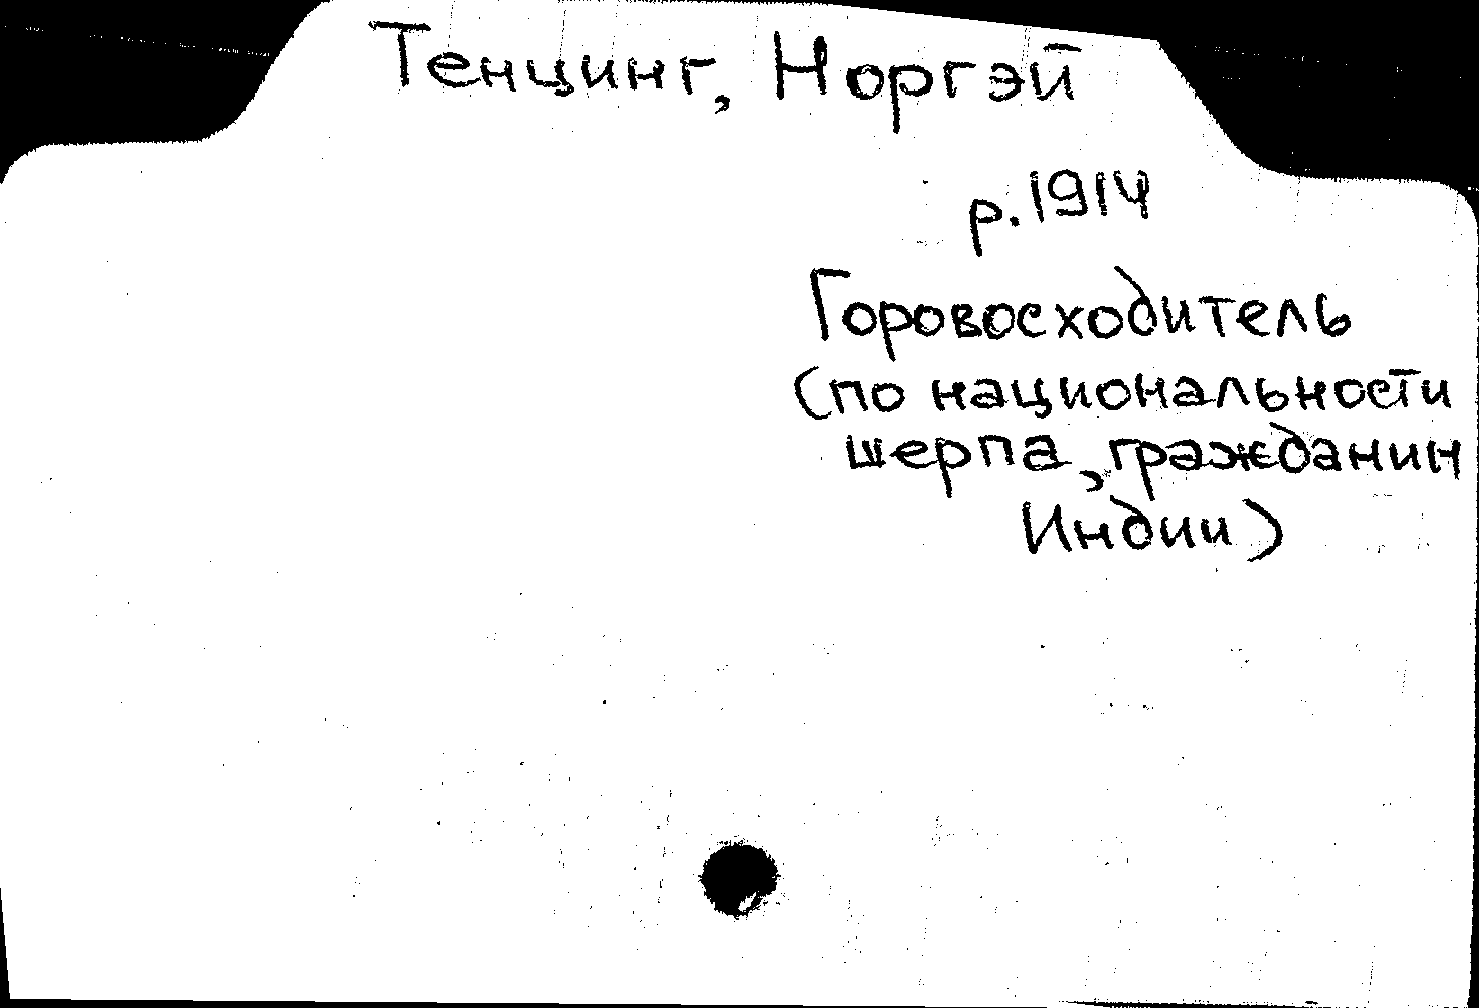 Тенцинг, Норгэй
р. 1914
Горовосходитель
(по национальности
шерпа, гражданин
Индии)